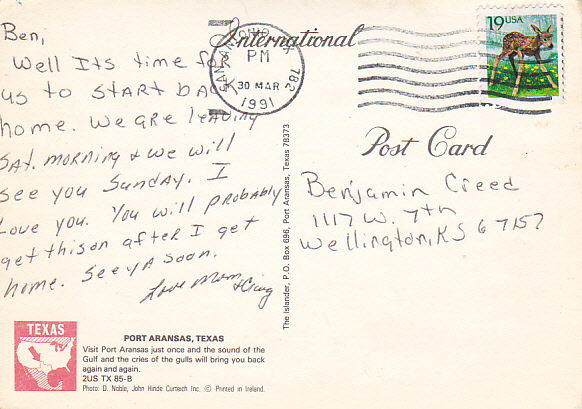 Ben,
Well Its time for
us to START BACK
home. We ARe leaving
SAT. MORNING & we will
see you Sunday. I
Love you. You will probably
get this on after I get
home. See yA soon.
Love Mom
International
SAN ANTONIO
PM
30 MAR
1991
782
19 USA
Post Card
Benjamin Creed
1117 W. 7th
Wellington, KS 67152
The Islander, P.O. Box 696, Port Aransas, Texas 78373
TEXAS
PORT ARANSAS, TEXAS
Visit Port Aransas just once and the sound of the
Gulf and the cries of the gulls will bring you back
again and again.
2US TX 85-B
Photo: D. Noble, John Hinde Curteich Inc. © Printed in Ireland.